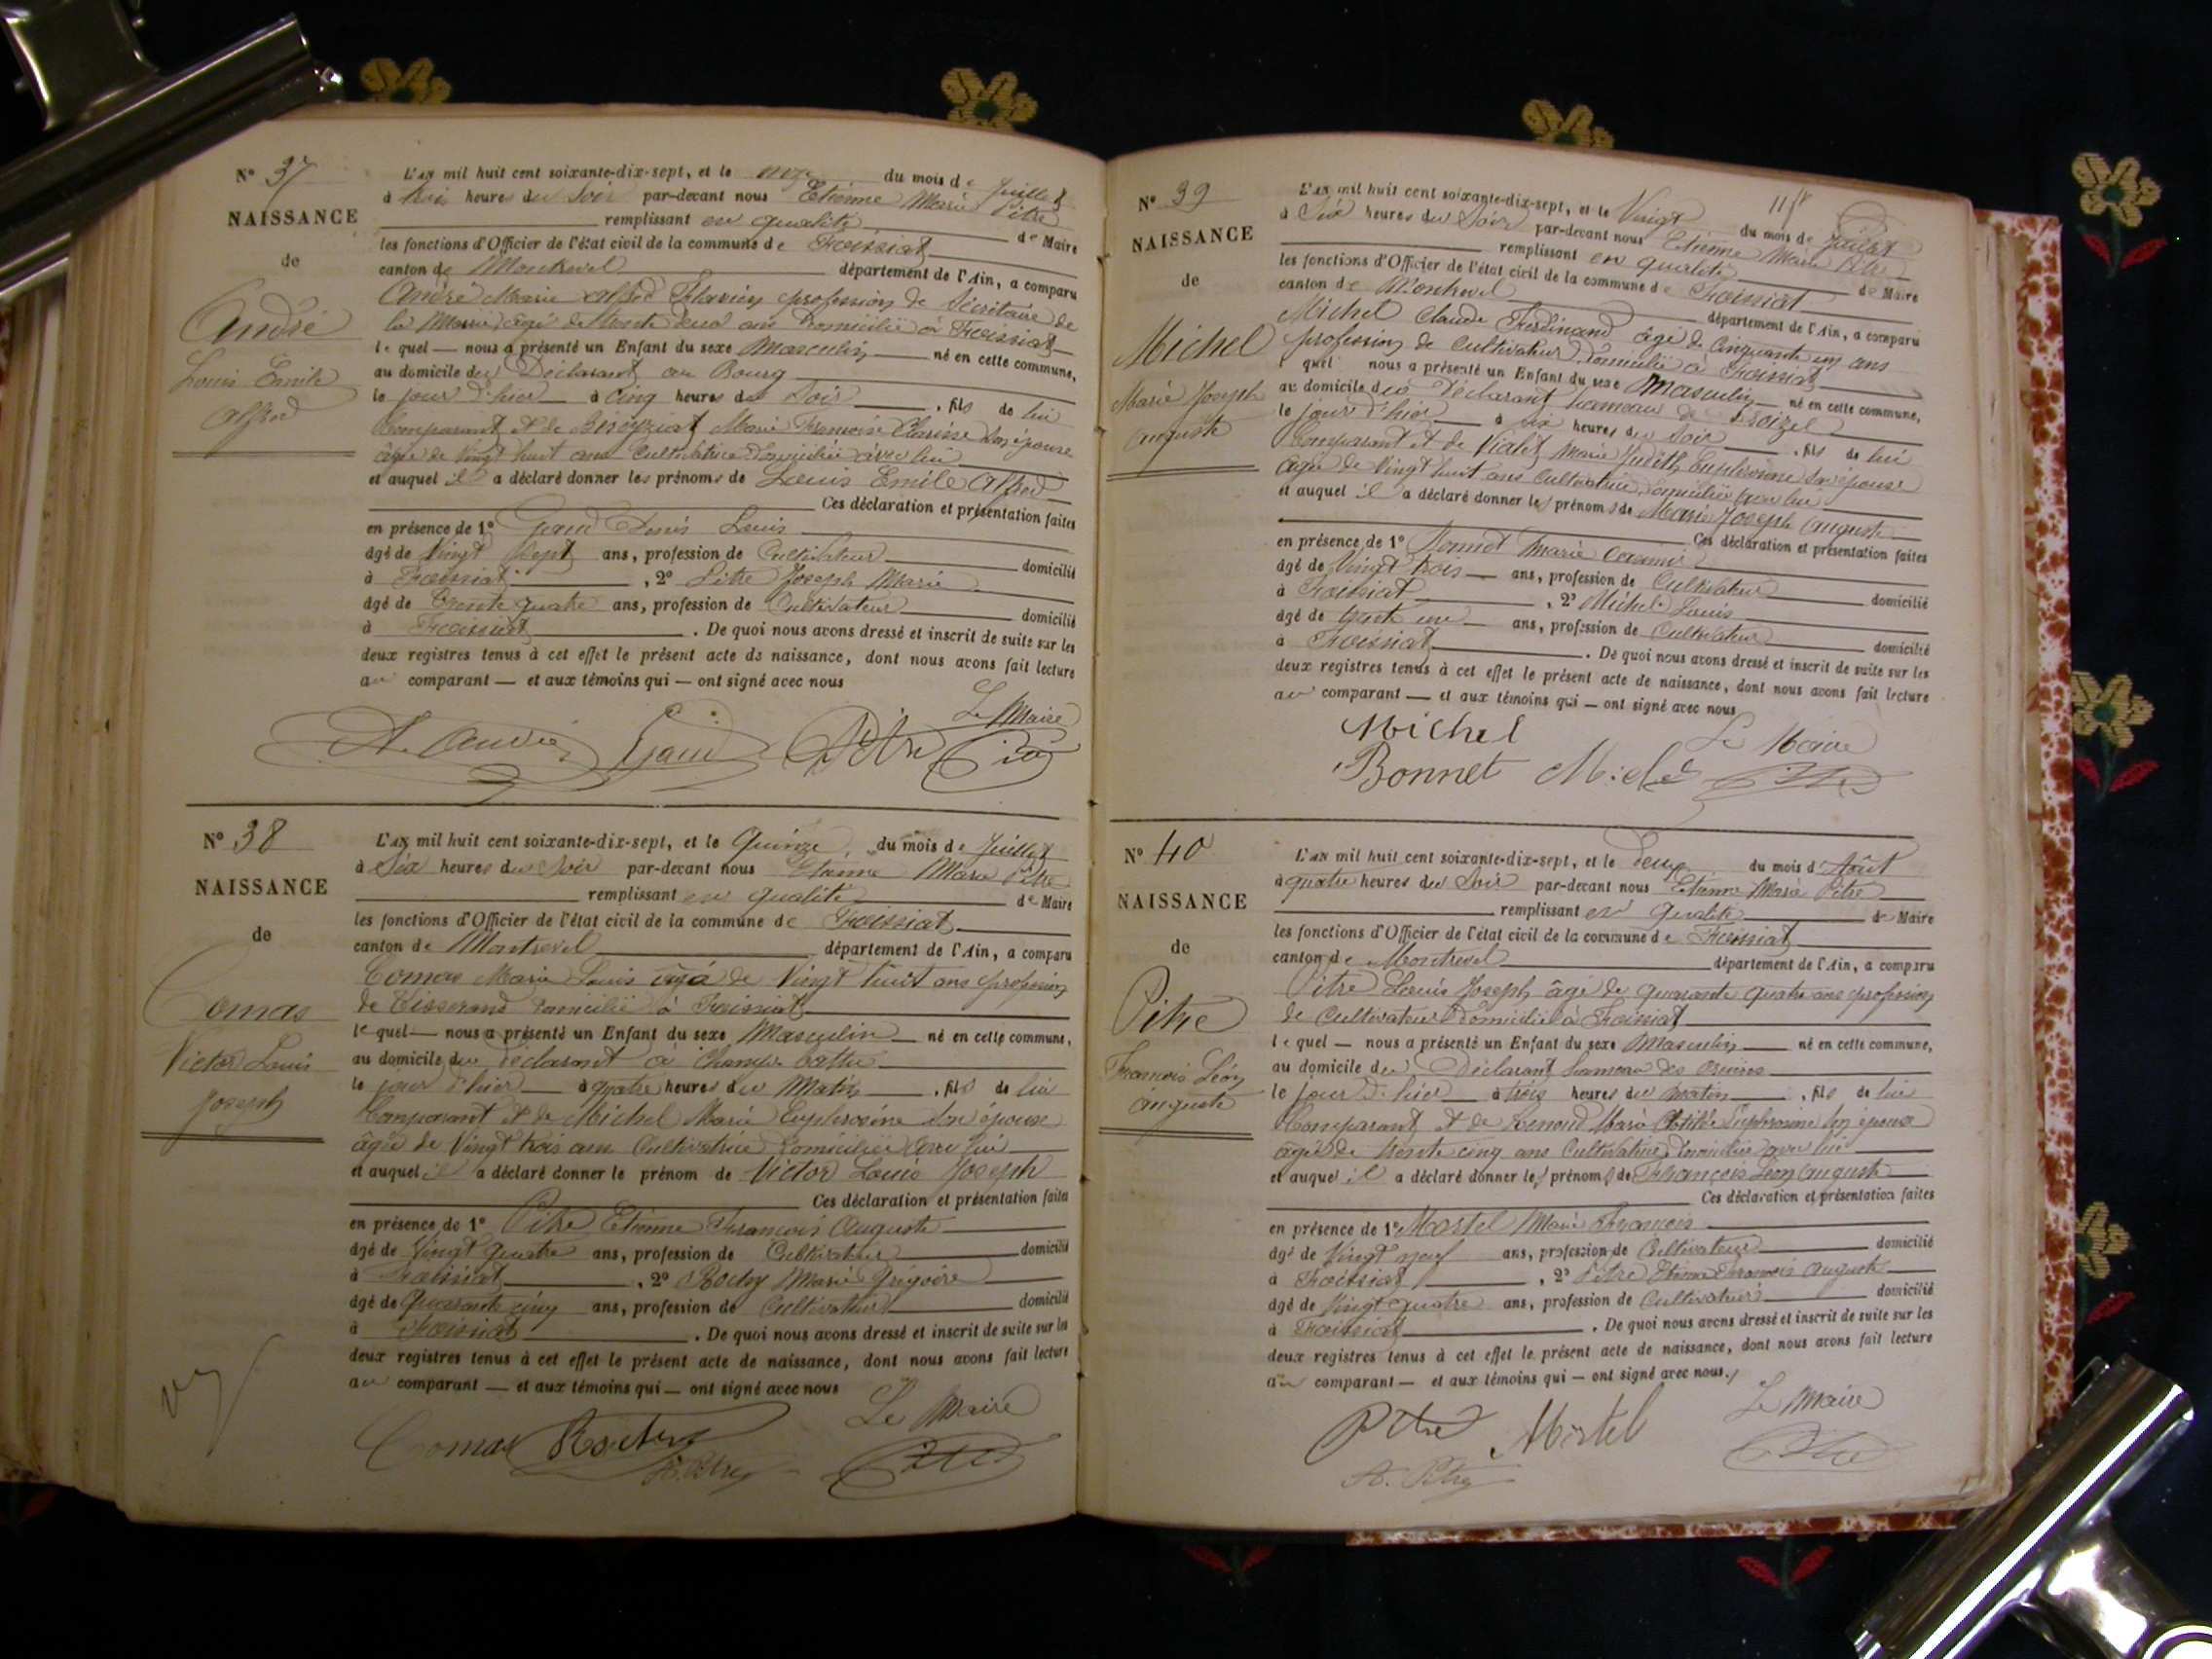 N° 37
NAISSANCE
de
André
Louis Emile
Alfred
L'AN mil huit cent soixante-dix-sept, et le onze du mois de Juillet
à trois heures du Soir par-devant nous Etienne Marie Pitre
remplissant en qualité de Maire
les fonctions d'Officier de l'état civil de la commune de Foissiat
canton de Montrevel département de l'Ain, a comparu
André Marie Alfred Flavien profession de Sécrétaire de
la Mairie, âgé de trente deux ans Domicilié à Foissiat
lequel — nous a présenté un Enfant du sexe Masculin né en cette commune,
au domicile du Déclarant au Bourg
le jour d'hier à cinq heures du Soir , fils de lui
Comparant et de Marie Francoise Clarisse son épouse
âgée de Vingt huit ans Cultivatrice domiciliée avec lui
et auquel il a déclaré donner les prénoms de Louis Emile Alfred
Ces déclaration et présentation faites
en présence de 1° Gaud Denis Louis
âgé de Vingt Sept ans, profession de Cultivateur domicilié
à Foissiat , 2° Pitre Joseph Marie
âgé de Trente quatre ans, profession de Cultivateur domicilié
à Foissiat . De quoi nous avons dressé et inscrit de suite sur les
deux registres tenus à cet effet le présent acte de naissance, dont nous avons fait lecture
au comparant — et aux témoins qui — ont signé avec nous
Le Maire
A. André Gaud Pitre Pitre
N° 38
NAISSANCE
de
Comas
Victor Louis
Joseph
L'AN mil huit cent soixante-dix-sept, et le Quinze du mois de Juillet
à Six heures du Soir par-devant nous Etienne Marie Pitre
remplissant en qualité de Maire
les fonctions d'Officier de l'état civil de la commune de Foissiat
canton de Montrevel département de l'Ain, a comparu
Comas Marie Louis âgé de Vingt huit ans profession
de Tisserand Domicilié à Foissiat
lequel — nous a présenté un Enfant du sexe Masculin né en cette commune,
au domicile du déclarant à Champ
le jour d'hier à quatre heures du Matin , fils de lui
Comparant et de Michel Marie Euphrosine son épouse
âgée de Vingt trois ans Cultivatrice domiciliée avec lui
et auquel il a déclaré donner le prénom de Victor Louis Joseph
Ces déclaration et présentation faites
en présence de 1° Pitre Etienne Francois Auguste
âgé de Vingt quatre ans, profession de Cultivateur domicilié
à Foissiat , 2° Rochy Marie Grégoire
âgé de Quarante cinq ans, profession de Cultivateur domicilié
à Foissiat . De quoi nous avons dressé et inscrit de suite sur les
deux registres tenus à cet effet le présent acte de naissance, dont nous avons fait lecture
au comparant — et aux témoins qui — ont signé avec nous
Le Maire
Comas Rochy Pitre
A. Pitre
N° 39
NAISSANCE
de
Michel
Marie Joseph
Auguste
L'AN mil huit cent soixante-dix-sept, et le Vingt du mois de Juillet
à Six heures du Soir par-devant nous Etienne Marie Pitre
remplissant en qualité de Maire
les fonctions d'Officier de l'état civil de la commune de Foissiat
canton de Montrevel département de l'Ain, a comparu
Michel Claude Ferdinand âgé de Cinquante un ans
profession de Cultivateur domicilié à Foissiat
quel nous a présenté un Enfant du sexe Masculin né en cette commune,
au domicile du déclarant hameau de
le jour d'hier à six heures du Soir , fils de lui
Comparant et de Vialet Marie Judith Euphrosine son épouse
âgée de Vingt huit ans Cultivatrice domiciliée avec lui
et auquel il a déclaré donner les prénoms de Marie Joseph Auguste
Ces déclaration et présentation faites
en présence de 1° Bonnet Marie
âgé de Vingt trois ans, profession de Cultivateur domicilié
à Foissiat , 2° Michel Louis
âgé de trente un ans, profession de Cultivateur domicilié
à Foissiat . De quoi nous avons dressé et inscrit de suite sur les
deux registres tenus à cet effet le présent acte de naissance, dont nous avons fait lecture
au comparant — et aux témoins qui — ont signé avec nous
Michel Le Maire
Bonnet Michel Pitre
N° 40
NAISSANCE
de
Pitre
Francois Léon
Auguste
L'AN mil huit cent soixante-dix-sept, et le Deux du mois d'Août
à quatre heures du Soir par-devant nous Etienne Marie Pitre
remplissant en qualité de Maire
les fonctions d'Officier de l'état civil de la commune de Foissiat
canton de Montrevel département de l'Ain, a comparu
Pitre Louis Joseph âgé de quarante quatre ans profession
de Cultivateur Domicilié à Foissiat
lequel — nous a présenté un Enfant du sexe Masculin né en cette commune,
au domicile du Déclarant hameau des
le jour d'hier à trois heures du matin , fils de lui
Comparant et de Renoud Marie Clotilde Euphrosine son épouse
âgée de trente cinq ans Cultivatrice domiciliée avec lui
et auquel il a déclaré donner les prénoms de François Léon Auguste
Ces déclaration et présentation faites
en présence de 1° Mortel Marie François
âgé de Vingt neuf ans, profession de Cultivateur domicilié
à Foissiat , 2° Pitre Etienne Francois Auguste
âgé de Vingt quatre ans, profession de Cultivateur domicilié
à Foissiat . De quoi nous avons dressé et inscrit de suite sur les
deux registres tenus à cet effet le présent acte de naissance, dont nous avons fait lecture
au comparant — et aux témoins qui — ont signé avec nous.
Le Maire
Pitre Mortel Pitre
A. Pitre